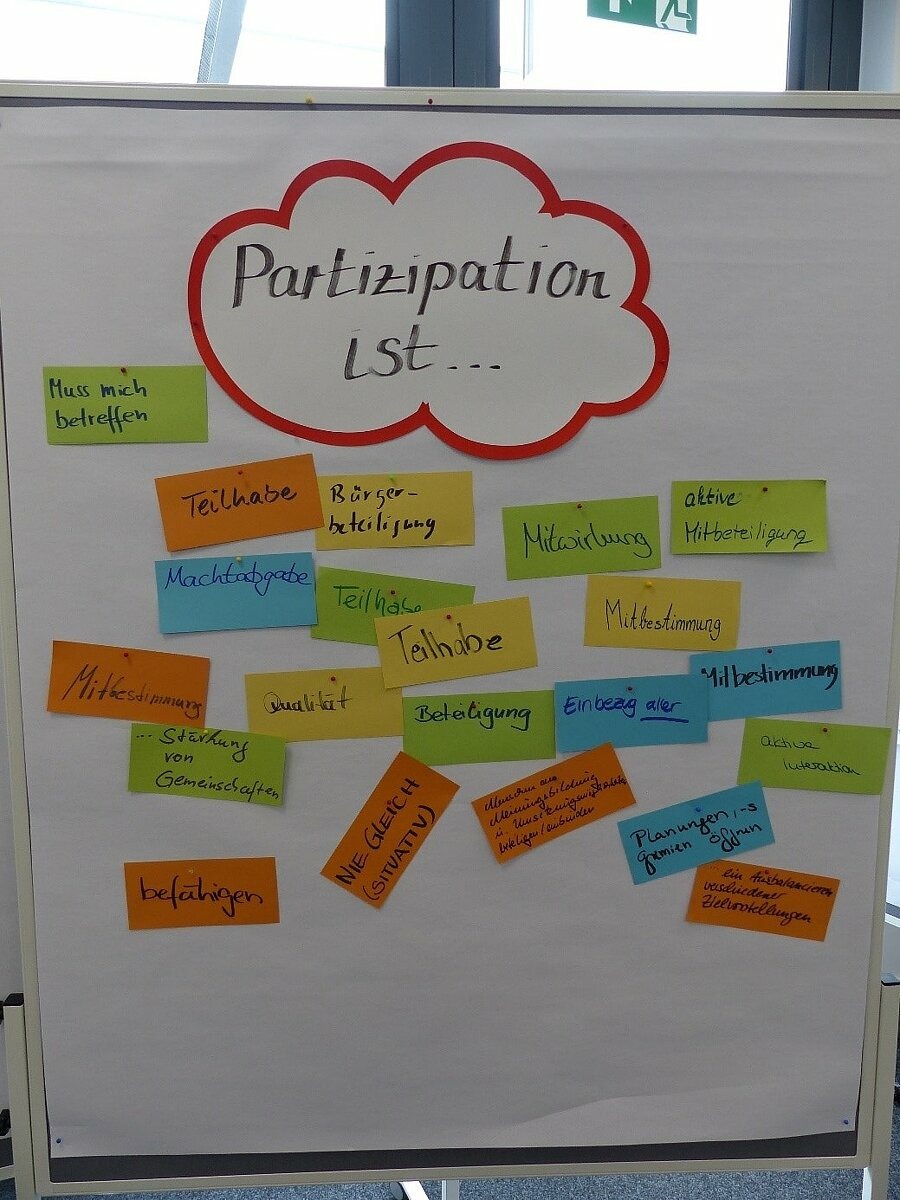 Partizipation
ist...
Muss mich
betreffen
Teilhabe
Bürger-
beteiligung
Mitwirkung
aktive
Mitbeteiligung
Machtabgabe
Teilhabe
Teilhabe
Mitbestimmung
Mitbestimmung
Qualität
Beteiligung
Einbezug aller
Mitbestimmung
... Stärkung
von
Gemeinschaften
NIE GLEICH
(SITUATIV)
Menschen an
Meinungsbildung
u.
beteiligen/einbinden
Planungen,-s
gremien öffnen
aktive
Interaktion
befähigen
... ein Ausbalancieren
verschiedener
Zielvorstellungen